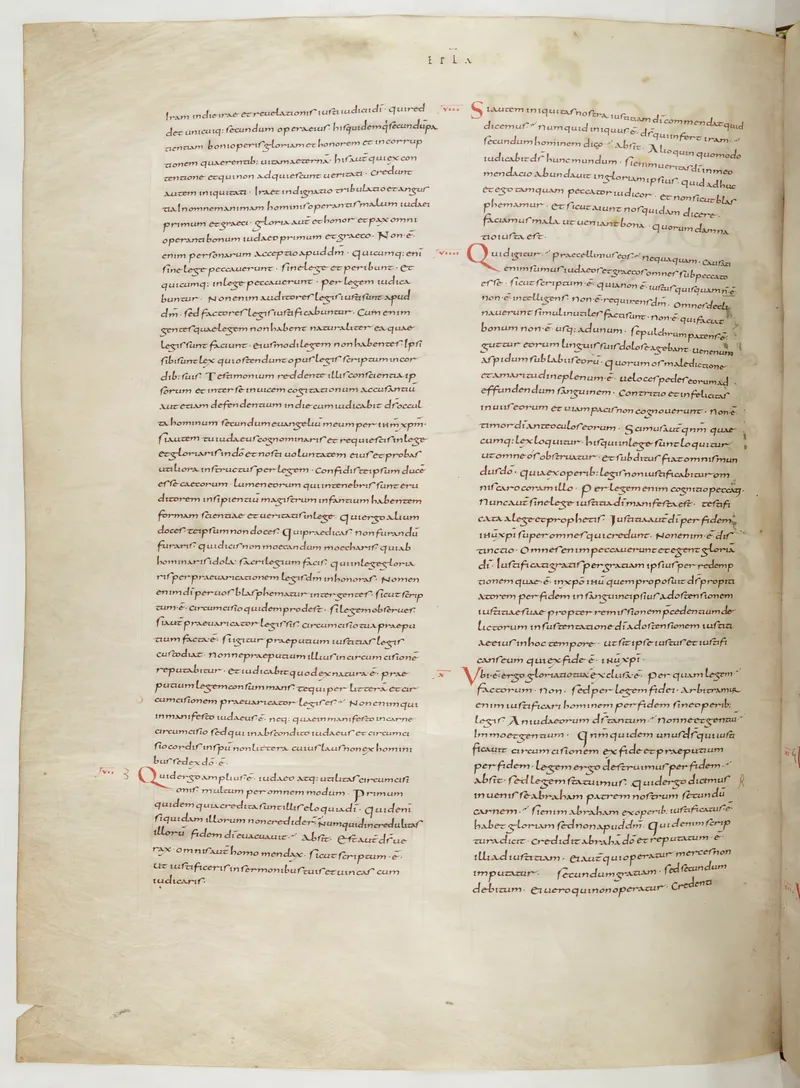 iram in die irae et reuelationis iusti iudicii dī · qui red
det unicuiq; secundum opera eius · his quidem q̄ secundū pa
tientiam boni operis gloriam et honorem et incorrup
tionem quaerentib; uitam aeternā · his aūt qui ex con
tentione et qui non adquiescunt ueritati · credunt
autem iniquitati · ira et indignatio tribulatio et angus
tia In omnem animam hominis operantis malum iudaei
primum et graeci · gloria aūt et honor et pax omni
operanti bonum iudaeo primum et graeco · Non ē
enim personarum acceptio apud dm̄ · quicumq; eni
sine lege peccauerunt · sine lege et peribunt · et
quicumq; in lege peccauerunt · per legem iudica
buntur · Non enim auditores legis iusti sunt apud
dm̄ · sed factores legis iustificabuntur · Cum enim
gentes quae legem non habent naturaliter ea quae
legis sunt faciunt · eiusmodi legem non habentes Ipsi
sibi sunt lex qui ostendunt opus legis scriptum in cor
dib; suis · Testimonium reddente illis conscientia ip
sorum et inter se inuicem cogitationum accusantiū
aut etiam defendentium in die cum iudicabit ds̄ occul
ta hominum secundum euangeliū meum per ihm̄ xpm̄ ·
si autem tu iudaeus cognominaris et requiescis in lege
et gloriaris in dō et nosti uoluntatem eius et probas
utiliora instructus per legem · Confidis te ipsum ducē
esse caecorum · lumen eorum qui in tenebris sunt eru
ditorem insipientiū magistrum infantium habentem
formam scientiae et ueritatis in lege · Qui ergo alium
doces te ipsum non doces · Qui praedicas non furandū
furaris · qui dicis non moecandum moecharis · qui ab
hominaris idola sacrilegium facis · qui in lege gloria
ris per praeuaricationem legis dm̄ inhonoras · Nomen
enim dī per uos blasphematur inter gentes · sicut scrip
tum · ē · circumcisio quidem prodest · si legem obserues ·
si aūt praeuaricator legis sis · circumcisio tua praepu
tium facta · ē · si igitur praeputium iustitias legis
custodiat · Nonne praeputium illius in circumcisionē
reputabitur · et iudicabit quod ex natura · ē · prae
putium legem consummans · te qui per litterā et cir
cumcisionem praeuaricator legis es · Non enim qui
in manifesto iudaeus · ē · neq; quae in manifesto in carne
circumcisio sed qui in abscondito iudaeus et circumci
sio cordis in spū non littera cuius laus non ex homini
bus sed ex dō · ē ·
Quid ergo amplius · ē · iudaeo aut q; utilitas circumcisi
onis · multum per omnem modum · Primum
quidem quia credita sunt illis eloquia dī · Quid eni
si quidam illorum non crediderī · Numquid incredulitas
illorū fidem dī euacuauit · Absit · Est aūt ds̄ ue
rax · omnis aūt homo mendax · sicut scriptum · ē ·
Ut iustificeris in sermonibus tuis et uincas cum
iudicaris ·
Si autem iniquitas nostra iustitiam dī commendat quid
dicemus · numquid iniquus · ē · ds̄ qui infert iram ·
secundum hominem dico · Absit · Alioquin quomodo
iudicabit ds̄ hunc mundum · si enim ueritas dī in meo
mendacio abundauit in gloriam ipsius · quid adhuc
et ego tamquam peccator iudicor · et non sicut blas
phemamur · et sicut aiunt nos quidam dicere ·
faciamus mala ut ueniant bona · quorum damna
tio iusta est ·
Quid igitur · praecellimus eos · nequaquam · causati
enim sumus iudaeos et graecos omnes sub peccato
esse · sicut scriptum · ē · quia non · ē · iustus quisquam n̄ ē
non · ē intelligens non · ē requirens dm̄ · Omnes decli
nauerunt simul inutiles facti sunt · non · ē qui faciat
bonum non · ē · usq; ad unum · sepulchrum patens ē ·
guttur eorum linguis suis dolose agebant · uenenum
aspidum sub labiis eorū · quorum os maledictione
et amaritudine plenum · ē · ueloces pedes eorum ad
effundendum sanguinem · Contritio et infelicitas
in uiis eorum et uiam pacis non cognouerunt · Non · ē
timor dī ante oculos eorum · Scimus aūt qnm̄ quae
cumq; lex loquitur · his qui in lege sunt loquitur
ut omne os obstruatur · et subditus fiat omnis mun
dus dō · quia ex operib; legis non iustificabitur om
nis caro coram illo · Per legem enim cognitio peccati ·
Nunc aūt sine lege iustitia dī manifesta est · testifi
cata a lege et prophetis · Iustitia aūt dī per fidem
ihū xpī super omnes qui credunt · Non enim · ē dis
tinctio · Omnes enim peccauerunt et egent gloriā
dī · Iustificati gratis per gratiam ipsius per redemp
tionem quae · ē · in xpō ihū quem proposuit ds̄ propiti
atorem per fidem in sanguine ipsius ad ostensionem
iustitiae suae propter remissionem p̄cedentium de
lictorum in sustentatione dī ad ostensionem iustiti
ae eius in hoc tempore · ut sit ipse iustus et iustifi
cans eum qui ex fide · ē · ihū xpī ·
Ubi · ē · ergo gloriatio tua exclusa · ē · Per quam legem ·
factorum · Non · sed per legem fidei · Arbitramur
enim iustificari hominem per fidem sine operib;
legis · An iudaeorum ds̄ tantum · Nonne et gentiū
Immo et gentium · Qnm̄ quidem unus ds̄ qui iusti
ficauit circumcisionem ex fide et praeputium
per fidem · legem ergo destruimus per fidem ·
Absit · sed legem statuimus · Quid ergo dicimus
inuenisse abraham patrem nostrum secundū
carnem · si enim abraham ex operib; iustificatus · ē ·
habet gloriam sed non apud dm̄ · Quid enim scrip
tura dicit · Credidit abraham dō et reputatum · ē ·
illi ad iustitiam · ei aūt qui operatur merces non
imputatur · secundum gratiam · sed secundum
debitum · Ei uero qui non operatur · Credenti